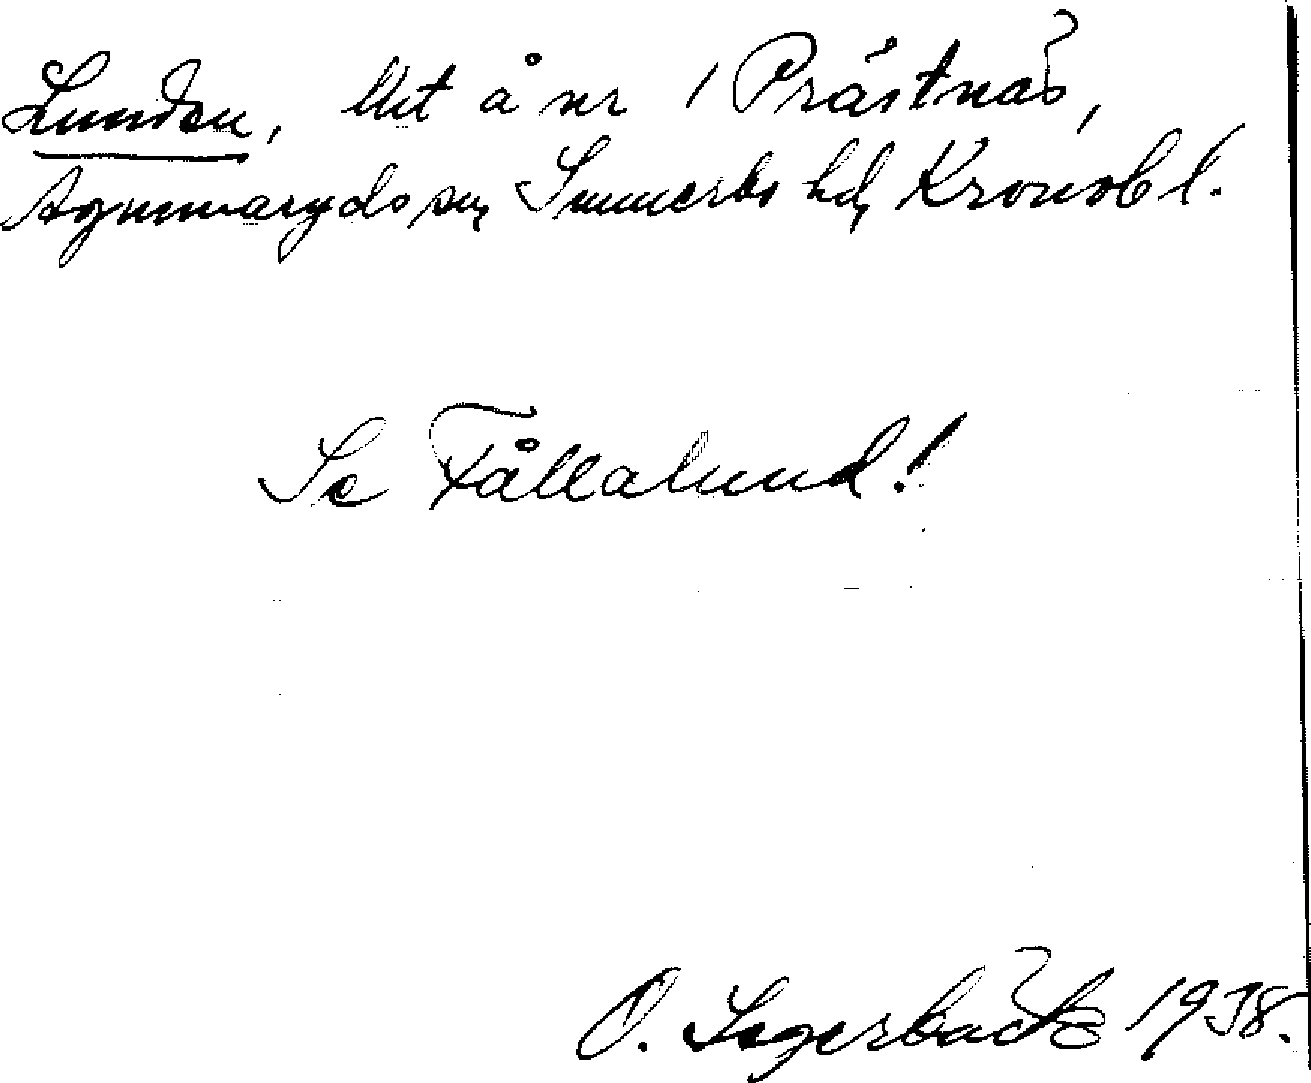 Lunden, lht å nr 1 Prästnäs,
Agunnaryds sn, Sunnerbo hd, Kronob l.
Se Fållalund!
O. Sagerbäck 1938.